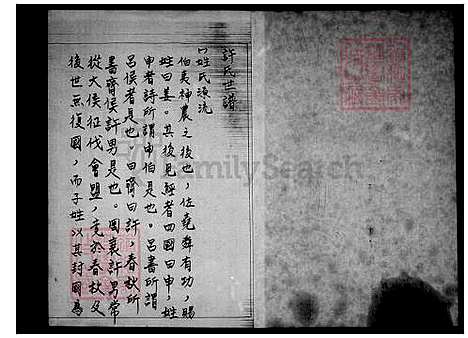 許氏世譜
姓氏源流
伯夷神農之後也，佐堯舜有功，賜
姓曰姜。其後見經者四國曰申，
申者詩所謂申伯是也。呂書所謂
呂侯者是也，曰齊曰許，春秋所
書齊侯許男是也。國衰許男常
從大侯征伐會盟，竟於春秋及
後世無復國，而子姓以其封國為
FamilySearch